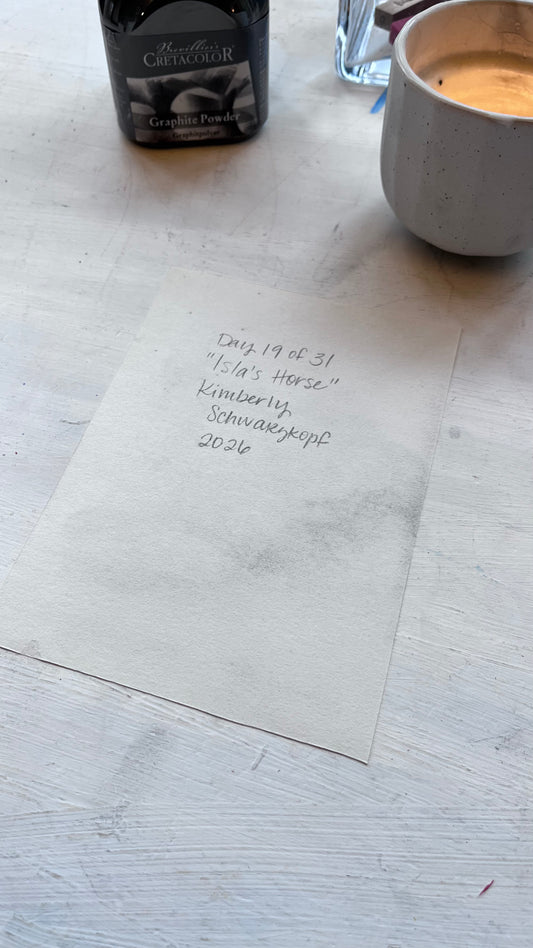 Brevillier's
CRETACOLOR
Graphite Powder
Graphitpulver
Day 19 of 31
"Isla's Horse"
Kimberly
Schwarzkopf
2026